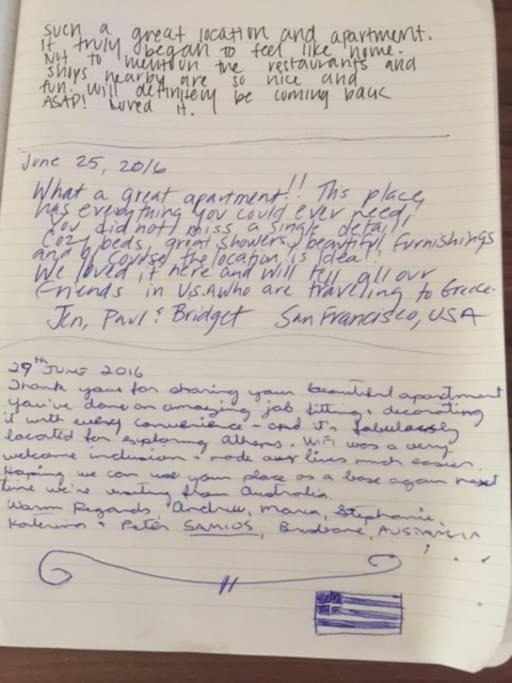 such a great location and apartment.
It truly began to feel like home.
Not to mention the restaurants and
shops nearby are so nice and
fun. Will definitely be coming back
ASAP! Loved it.
June 25, 2016
What a great apartment!! This place
has everything you could ever need!
You did not miss a single detail!
Cozy beds, great showers, beautiful furnishings
and of course the location is ideal!
We loved it here and will tell all our
friends in U.S.A who are traveling to Greece.
Jen, Paul & Bridget San Francisco, USA
29th JUNE 2016
Thank you for sharing your beautiful apartment
You've done an amazing job fitting & decorating
it with every convenience - and it's fabulously
located for exploring Athens. WiFi was a very
welcome inclusion & made our lives much easier.
Hoping we can use your place as a base again next
time we're visiting from Australia.
Warm Regards Andrew, Maria, Stephanie,
Katerina & Peter SAMIOS, Brisbane, AUSTRALIA